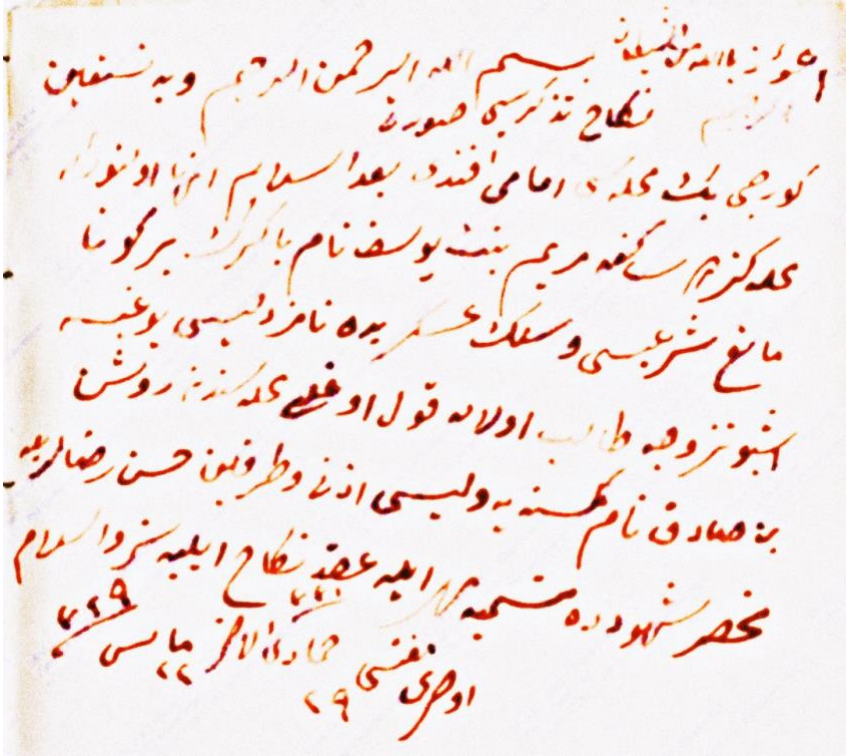 بسم الله الرحمن الرحيم وبه نستعين
نكاح تذكره سى صورة
كورجى بك محله سى امامى افندى بعد السلام انها اولنور
محله كزده ساكنه مريم بنت يوسف نام باكرنك بر كونا
مانع شرعيسى وسلك عسكريده نامزدليسى يوغيسه
اشبو تزوجه طالب اولان قول اوغلى محله سندن روشن
بن صادق نام كمسنه يه وليسى اذنى وطرفين حسن رضالريله
محضر شهودده تسميه مهر ايله عقد نكاح ايليه سز والسلام
جمادى الاخر
٢٩ ٢٢ مايس ٣٢٩